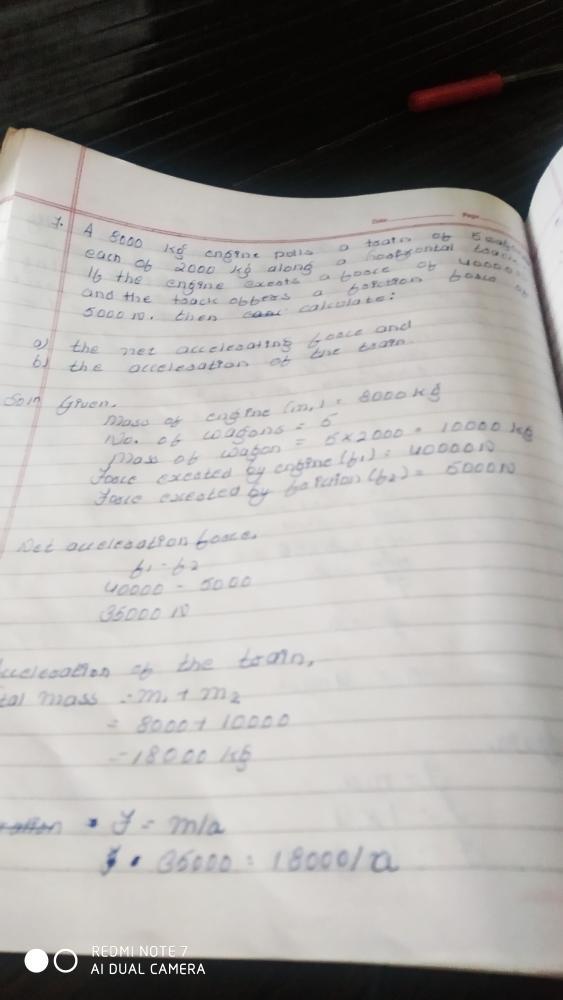 Date Page
7. A 8000 kg engine pulls a train of 5
each of 2000 kg along a horizontal track
If the engine exerts a force of 40000
and the track offers a friction force of
5000 N. then calculate:
a) the net accelerating force and
b) the acceleration of the train
Soln Given.
Mass of engine (m,) = 8000 kg
No. of wagons = 5
Mass of wagon = 5 x 2000 = 10000 kg
Force exerted by engine (f1) = 40000 N
Force exerted by friction (f2) = 5000 N
Net acceleration force.
f1 - f2
40000 - 5000
35000 N
Acceleration of the train,
tal mass = m1 + m2
= 8000 + 10000
= 18000 kg
F = m/a
35000 = 18000/a
REDMI NOTE 7
AI DUAL CAMERA